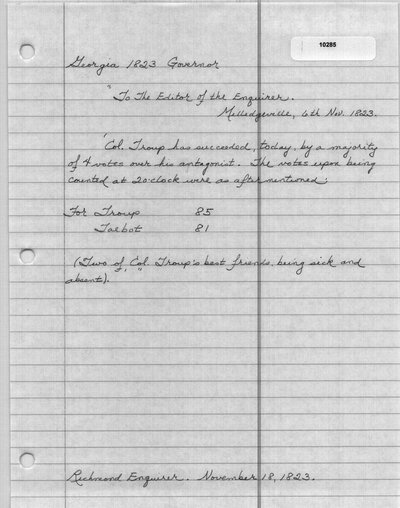 10285
Georgia 1823 Governor
"To The Editor of the Enquirer.
Milledgeville, 6th Nov. 1823.
'Col. Troup has succeeded, today, by a majority
of 4 votes over his antagonist. The votes upon being
counted at 2 o'clock were as after mentioned:
For Troup 85
Talbot 81
(Two of Col. Troup's best friends, being sick and
absent).
Richmond Enquirer. November 18, 1823.